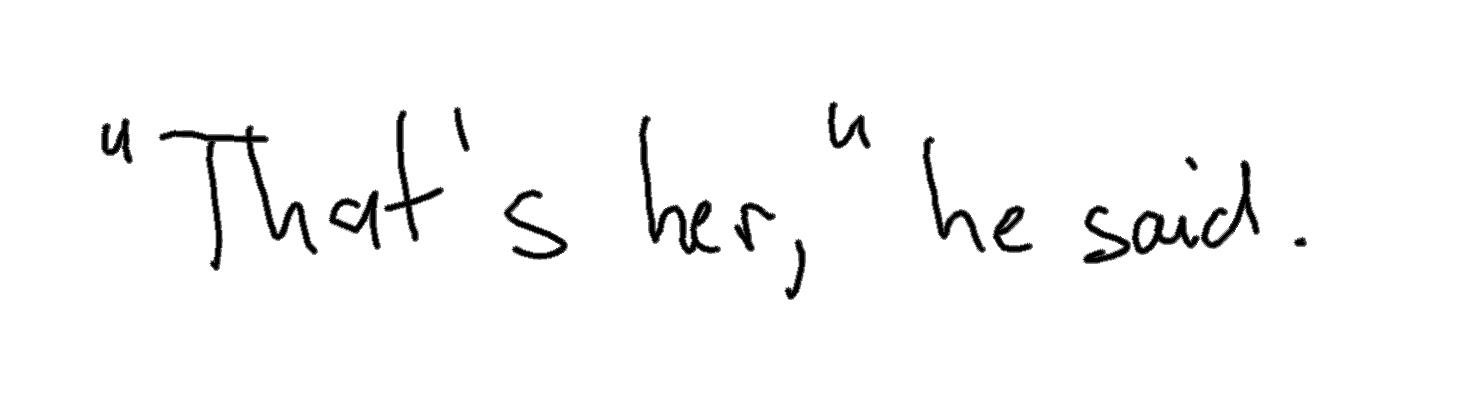 "That's her," he said.